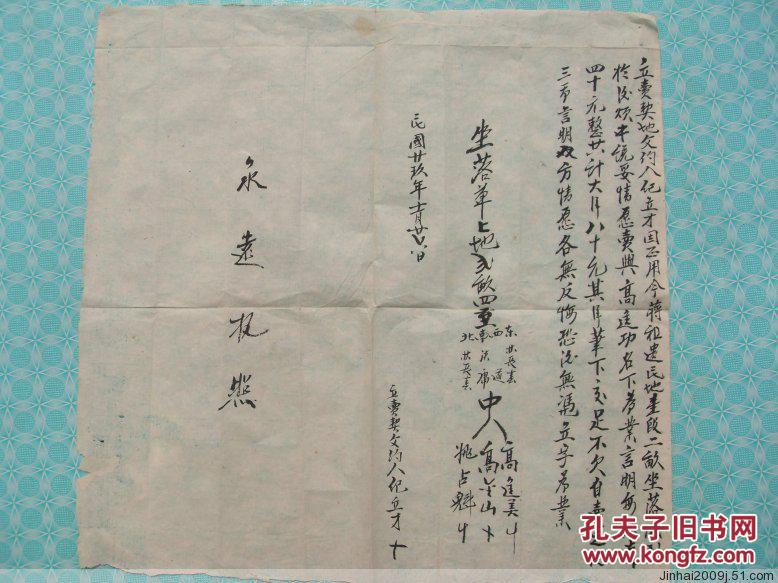 立賣契地文約人紀立才因正用今蒋祖遺民地壹段二畝坐落
於後煩中說妥情愿賣與高進功名下為業言明每
四十元整共計大洋八十元其洋筆下交足不欠自賣之
三年言明双方情愿各無反悔恐後無馮立字為業
坐落草上地弍畝四至
東
西
道
南
北
中人
高進美 十
高金山 十
姚占魁 十
民國廿玖年十月廿六日
立賣契文約人紀立才 十
永遠执照
孔夫子旧书网
www.kongfz.com
Jinhai2009j.51.com